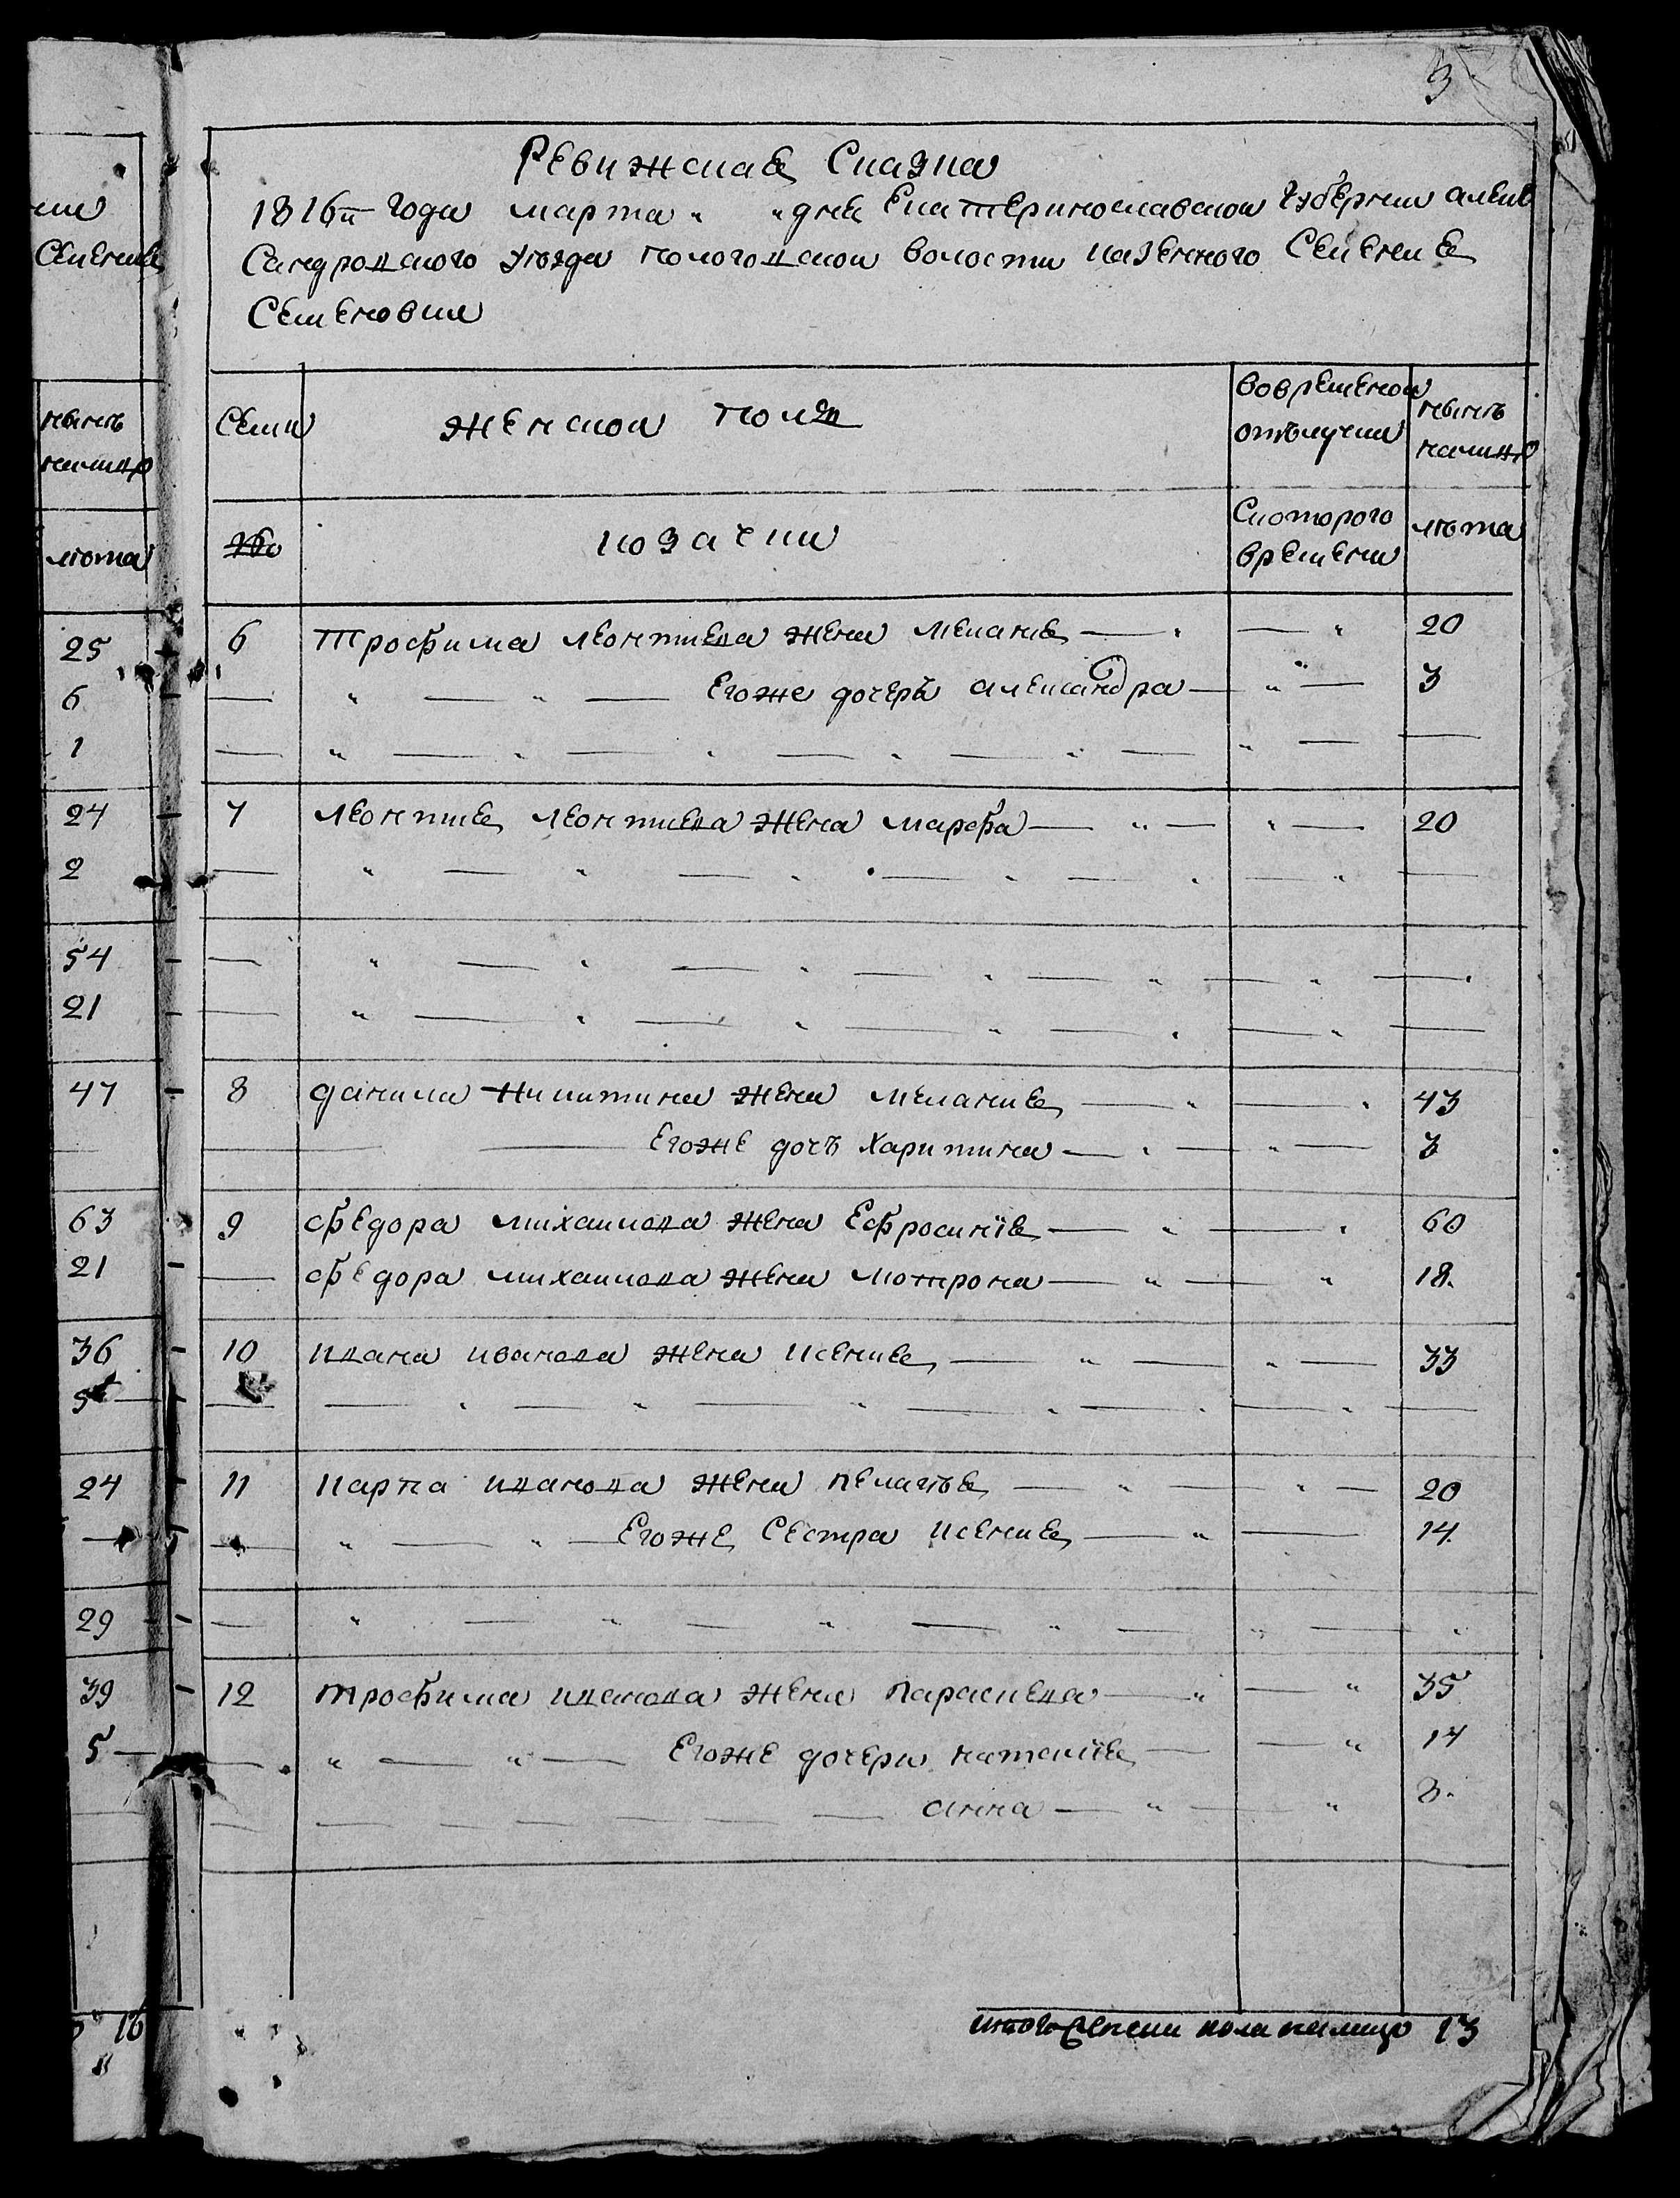 3
Ревижская Сказка
1816го года марта " " дня Екатеринославской губернии алек
Сандровского уезда пологовской волости казенного Селения
Семеновки
Семи
женской пол
во временой отълучки
ныне налицо
козачки
Скоторого времени
лета
6 трофима леонтиева жена мелания — " — " 20
— " — " — Егоже дочерь александра — " — 3
— " — " — " — " — " — " — —
7 леонтия леонтиева жена марфа — " — " — 20
— " — " — " — " — " — " —
— " — " — " — " — " — " —
— " — " — " — " — " — " —
8 данила никитина жена мелания — " — " 43
— — Егоже дочъ харитина — " — " — 3
9 федора михаилова жена Ефросинiя — " — " 60
— федора михаилова жена мотрона — " — " 18.
10 ивана иванова жена ксения — " — " — 33
— — " — " — " — " — " — " —
11 карпа иванова жена пелагея — " — " — 20
— " — " — Егоже Сестра ксения — " — 14.
— " — " — " — " — " — "
12 трофима иванова жена параскева — " — " 35
— " — " — Егоже дочери наталiя — — " 14
— — — — — — анна — " — " 8.
итого женски пола налицо 13
Селения
ныне
налицо
лета
25
6
1
24
2
54
21
47
—
63
21
36
5
24
—
29
39
5 —
16